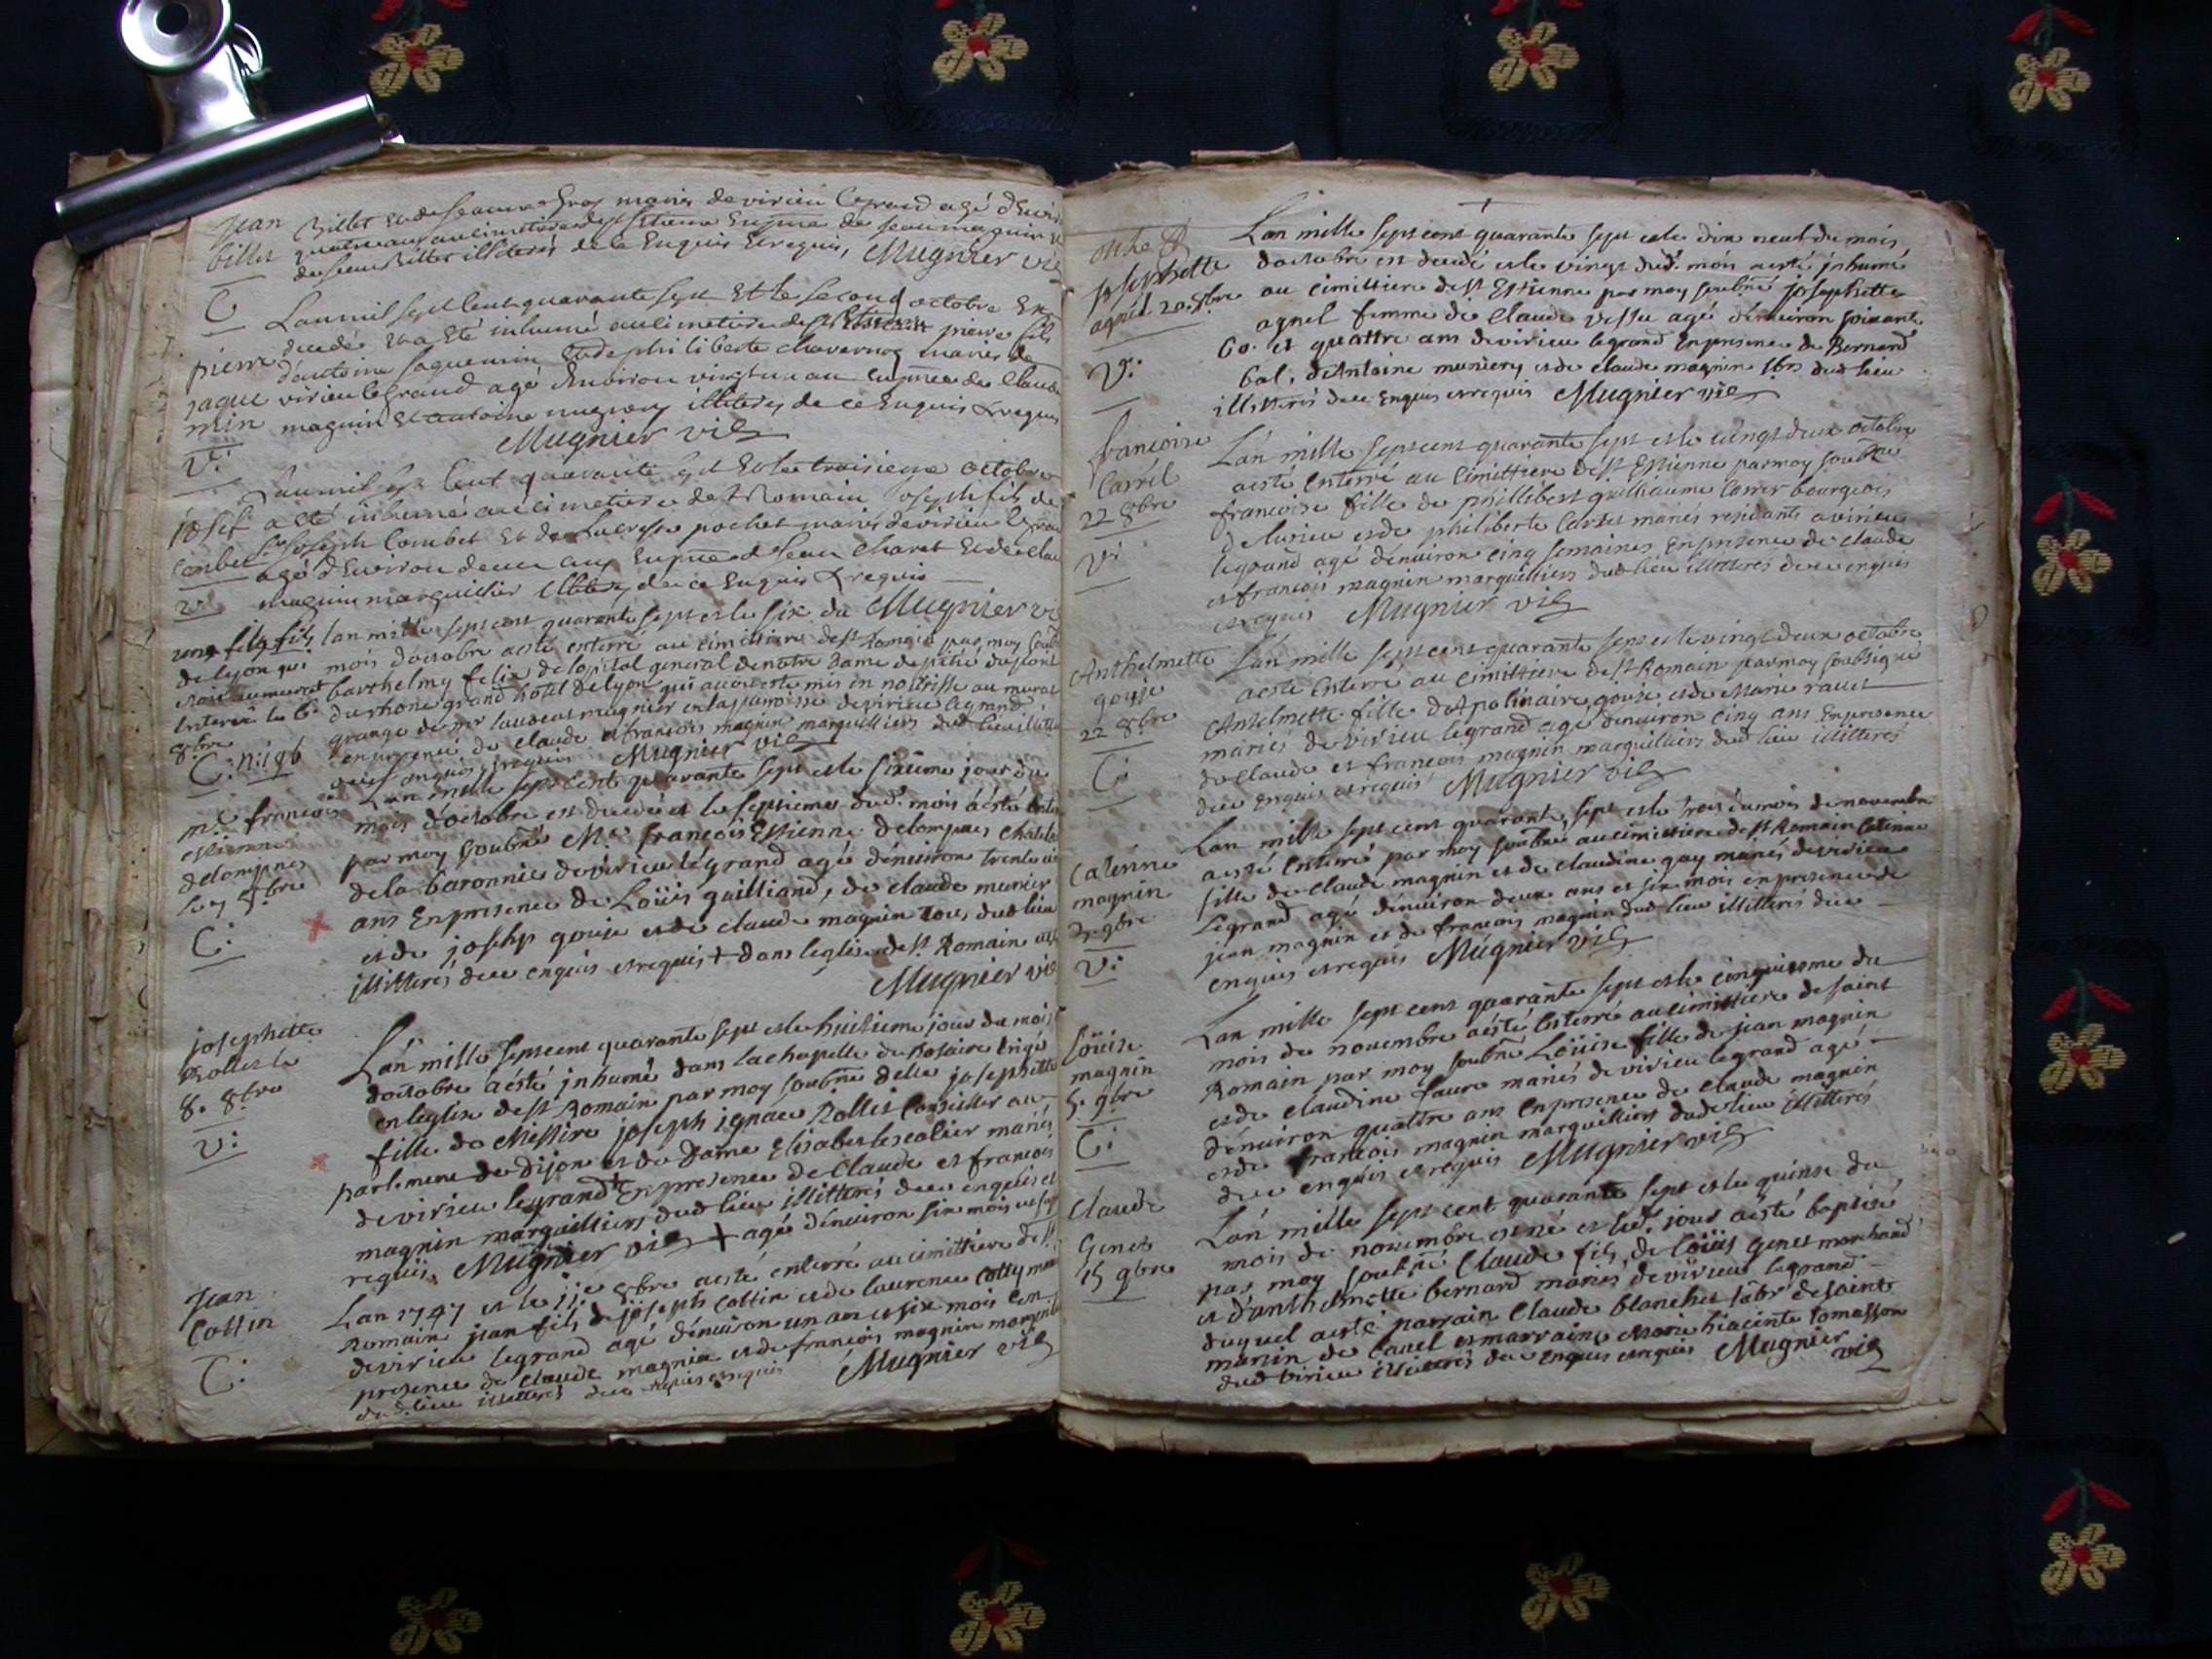 Jean
billet
C
Billet et de jeanne Gros mariés de virieu legrand agé d'Envir
quatre ans au cimetiere de st Etienne En pnce de jean magnin et
de jean Billet illiterés de ce Enquis Erequis, Mugnier vic
pierre
jaque
min
V:
L'an mil sept cent quarante sept Et le second octobre Est
decedé et a Eté inhumé au cimetiere de st Etienne pierre fils
d'antoine jaquemin Et de philiberte chavernoz mariés de
virieu legrand agé d'Environ vingt un an En pnce de Claude
magnin Et antoine mugniery illiterés de ce Enquis & requis
Mugnier vic
josef
combet
V:
L'an mil sept cent quarante sept Et le troisieme octobre
a eté inhumé au cimetiere de st Romain Joseph fils de
sr joseph Combet Et de Lucresse pochet mariés de virieu legrand
agé d'Environ deux ans En pnce de jean Charet Et de Clau
magnin marguillier illiterés de ce Enquis & requis
Mugnier vic
de lyon qui
etoit au murat
Enterré le 6e
8bre
C: n: 196
lan mille sept cent quarante sept et le six du
mois d'octobre a esté enterré au cimittiere de st Romain par moy soub
barthelmy felix de lopital general de notre Dame de pitié du pont
du rhone grand hotel de Lyon qui avoit esté mis en nourisse au murat
grange de sr laurent mugnier en la parroisse de virieu legrand
en presence de claude et francois magnin marguilliers dud lieu illite
de ce enquis erequis Mugnier vic
mre francois
estienne
delompnes
le 7 8bre
C:
Lan mille sept cent quarante sept et le sixieme jour du
mois d'octobre est decedé et le septieme dud. mois a esté ente
par moy soubné Me francois Estienne delompnes chatel
de la baronnie de virieu legrand agé d'environ trente
ans En presence de Loüis guilliand, de claude munier
et de joseph gouje et de claude magnin tous dud lieu
illitterés de ce enquis et requis + dans leglise de st Romain
Mugnier vic
josephette
Rollet le
8. 8bre
V:
L'an mille sept cent quarante sept et le huitieme jour du mois
d'octobre a esté inhumé dans la chapelle du Rosaire Erigé
en leglise de st Romain par moy soubné delle josephette
fille de Messire joseph ignace Rollet Conseiller au
parlement de Dijon et de Dame Elisabet lescalier mariés
de virieu legrand + En presence de Claude et francois
magnin marguilliers dud lieu illitterés de ce enquis et
requis. Mugnier vic + agé d'environ six mois
Jean
Cottin
C:
Lan 1747 et le 11e 8bre a esté enterré au cimittiere de st
Romain jean fils de joseph Cottin et de laurence Cotty mari
de virieu legrand agé d'environ un an et six mois En
presence de claude magnin et de francois magnin marguil
dud. lieu illitterés de ce enquis et requis Mugnier vic
+
josephette
agnel 20. 8bre
V:
Lan mille sept cent quarante sept et le dix neuf du mois
d'octobre est decedé et le vingt dud. mois a esté inhumé
au cimittiere de st Estienne par moy soubné josephette
agnel femme de Claude Vessu agé d'environ soixant
60. et quattre ans de virieu legrand En presence de Bernard
bal, d'Antoine muniery et de claude magnin dud lieu
illitterés de ce Enquis et requis Mugnier vic
francoise
Carrel
22 8bre
V:
L'an mille sept cent quarante sept et le vingt deux octobre
a esté Enterré au Cimittiere de st Estienne par moy soubné
francoise fille de phillibert guilliaume Carrer bourgeois
de virieu et de philiberte Cartet mariés residants a virieu
legrand agé d'environ cinq semaines En presence de claude
et francois magnin marguilliers dud lieu illitterés de ce enquis
et requis Mugnier vic
Anthelmette
gouje
22 8bre
C:
L'an mille sept cent quarante sept et le vingt deux octobre
a esté Enterré au Cimittiere de st Romain par moy soubsigné
Antelmette fille d'Apolinaire gouje et de Marie ravet
mariés de virieu legrand agé d'environ cinq ans En presence
de Claude et francois magnin marguilliers dud lieu illitterés
de ce Enquis et requis Mugnier vic
Caterine
magnin
3. 9bre
V:
Lan mille sept cent quarante sept et le trois du mois de novembre
a esté Enterré par moy soubné au cimittiere de st Romain Caterine
fille de Claude magnin et de claudine gay mariés de virieu
Legrand agé d'environ deux ans et six mois en presence de
jean magnin et de francois magnin dud lieu illitterés de ce
enquis et requis Mugnier vic
Loüise
magnin
5. 9bre
C:
Lan mille sept cent quarante sept et le cinquiesme du
mois de novembre a esté Enterré au cimittiere de saint
Romain par moy soubné Loüise fille de jean magnin
et de claudine faure mariés de virieu legrand agé
d'environ quattre ans En presence de claude magnin
et de francois magnin marguilliers dud lieu illitterés
de ce enquis et requis Mugnier vic
Claude
Genet
15 9bre
L'an mille sept cent quarante sept et le quinse du
mois de novembre est né et led. jour a esté baptisé
par moy soubné Claude fils de Loüis Genet marchand
et d'anthelmette bernard mariés de virieu legrand
duquel a esté parrain Claude blanchet labr de saint
martin de bavel et marraine Marie hiacinte tomasson
dud virieu illiterés de ce enquis et requis Mugnier
vic